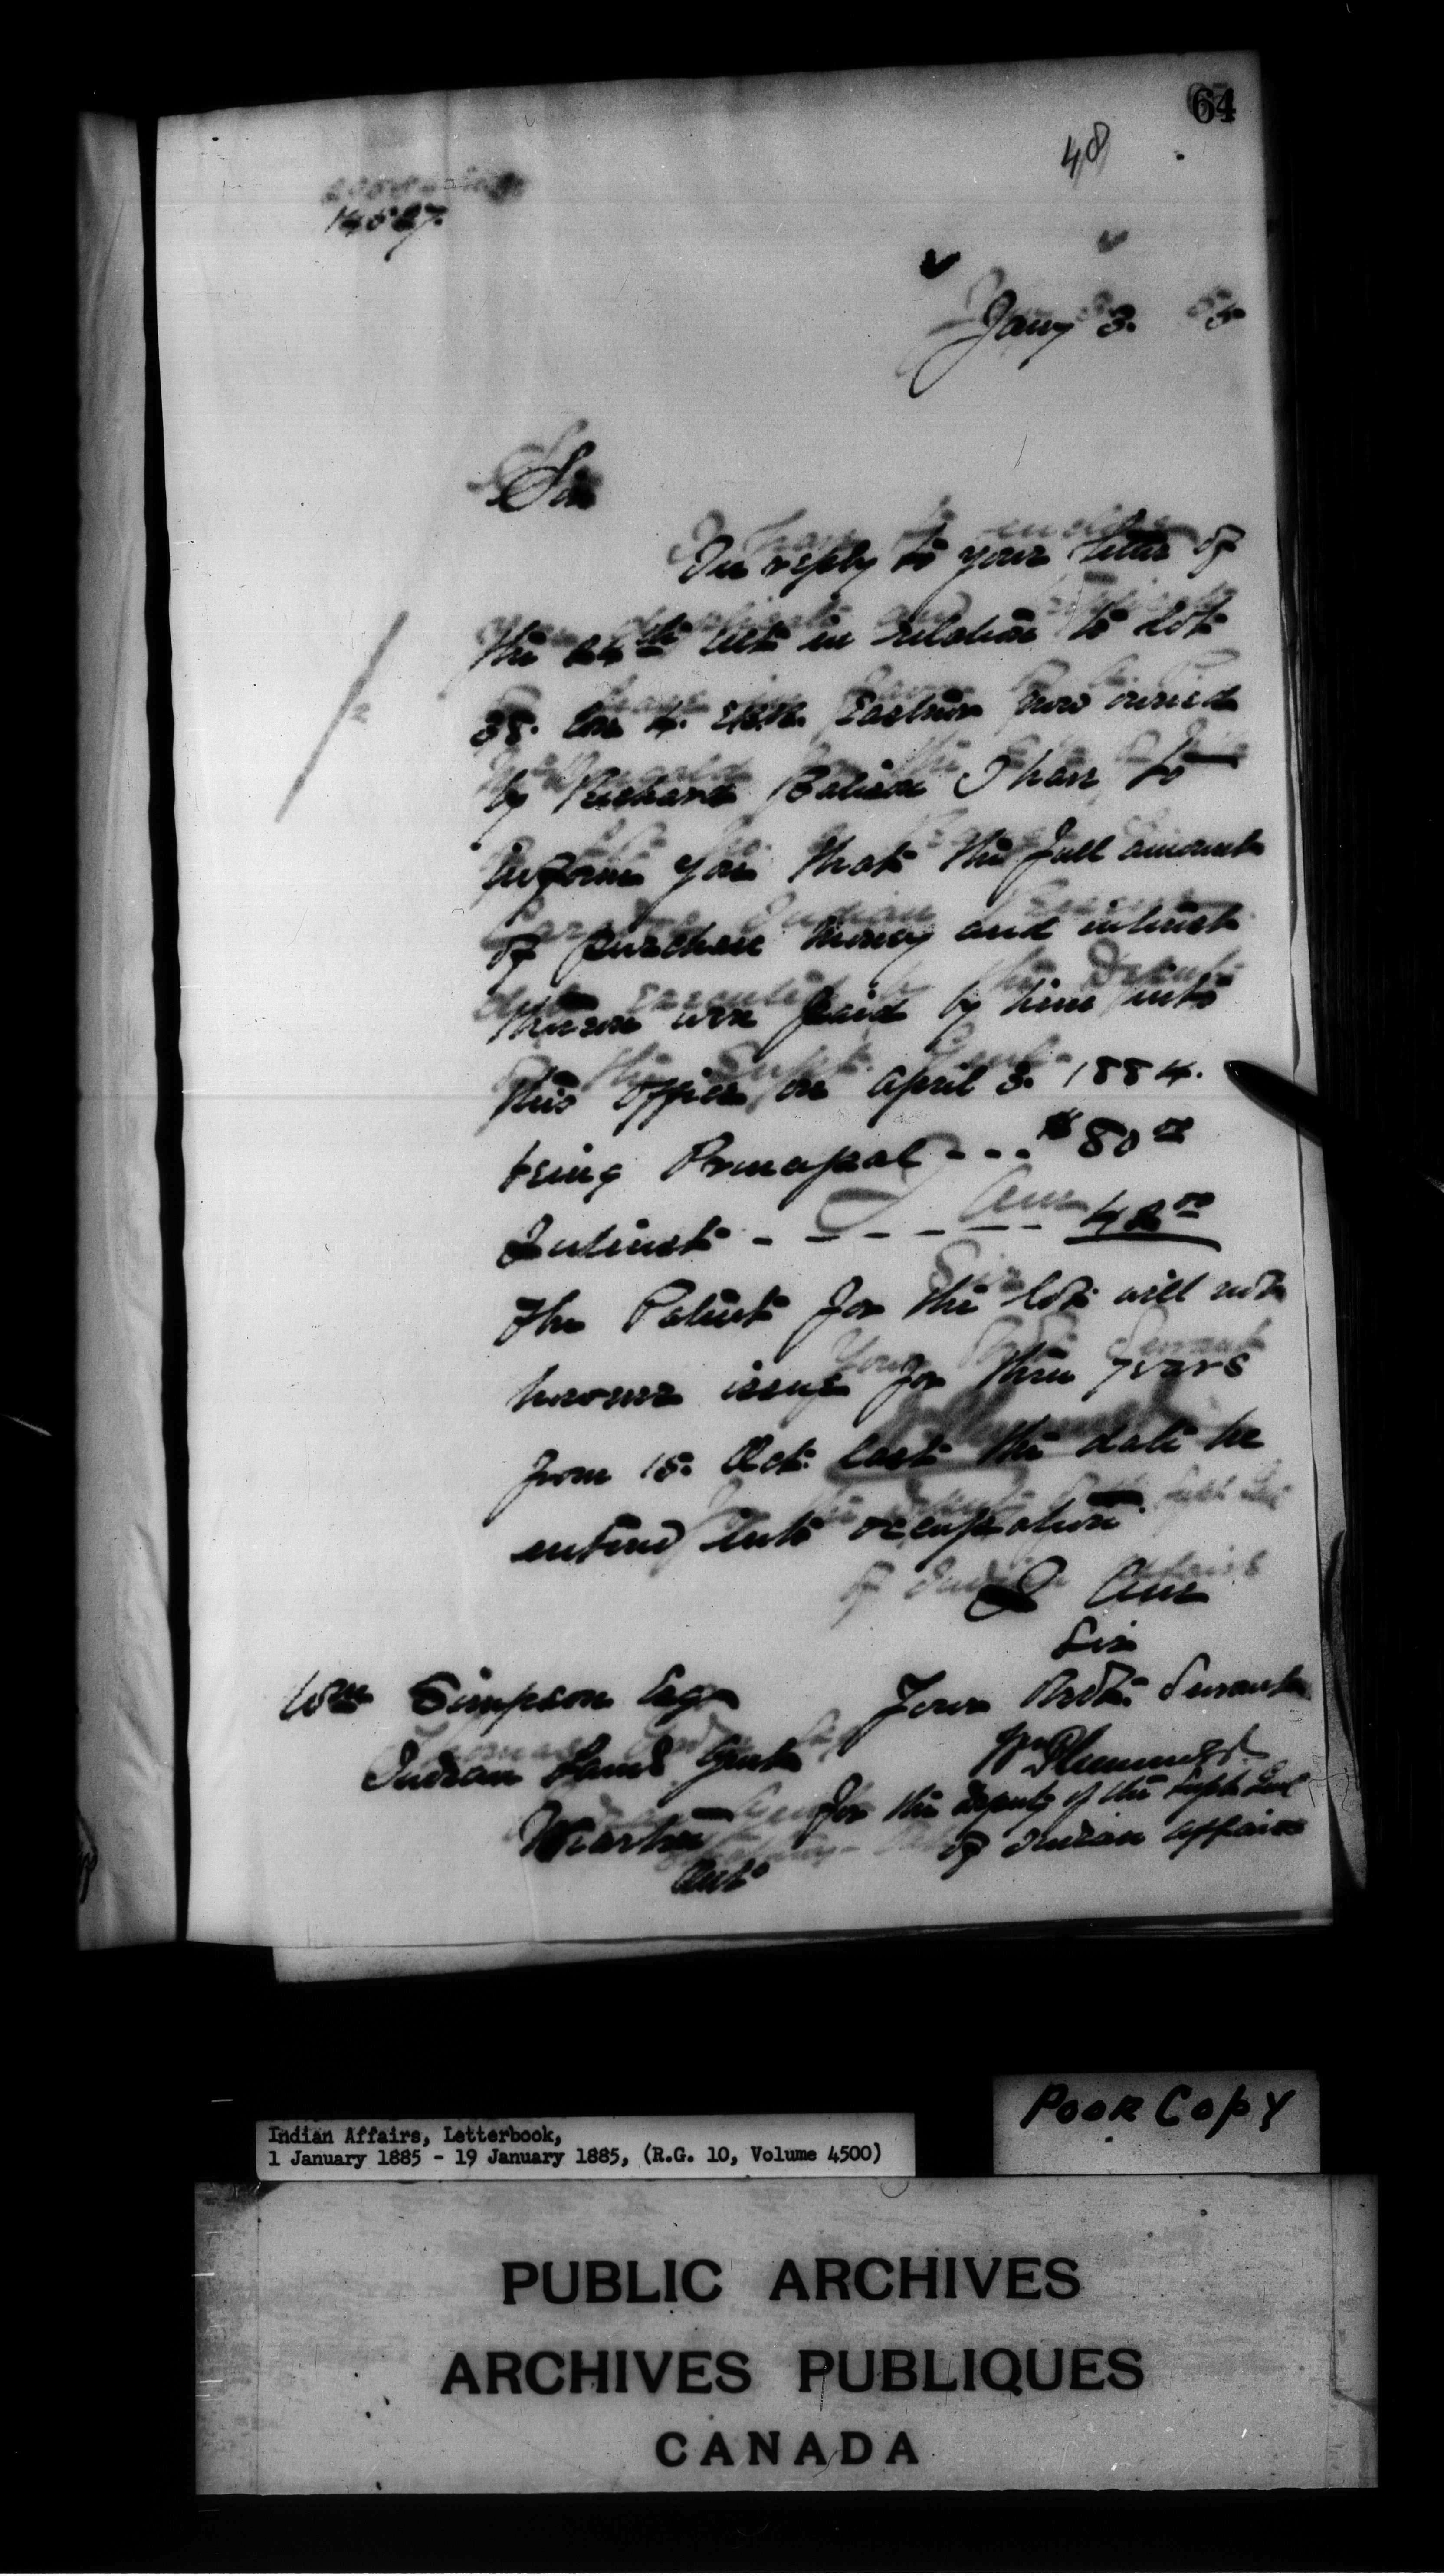 64
48
14587.
Jany 3. 85
Sir
In reply to your letter of
the 24th ult in relation to Lot
38. Con 4. E.B.R. Eastnor now owned
by Richard I have to
inform you that the full amount
of purchase money and interest
thereon were paid by him into
this office on April 3. 1884.
being Principal - - - $80 00
Interest - - - - - - 42 00
The Patent for the lot will not
however issue for three years
from 15. Oct. last the date he
entered into occupation
I am
Sir
Your Obdt. Servant
Wm Plummer
for the Deputy of the Supt Genl
of Indian Affairs
Wm Simpson Esq
Indian Land Agent
Wiarton
Ont
Poor Copy
Indian Affairs, Letterbook,
1 January 1885 - 19 January 1885, (R.G. 10, Volume 4500)
PUBLIC ARCHIVES
ARCHIVES PUBLIQUES
CANADA